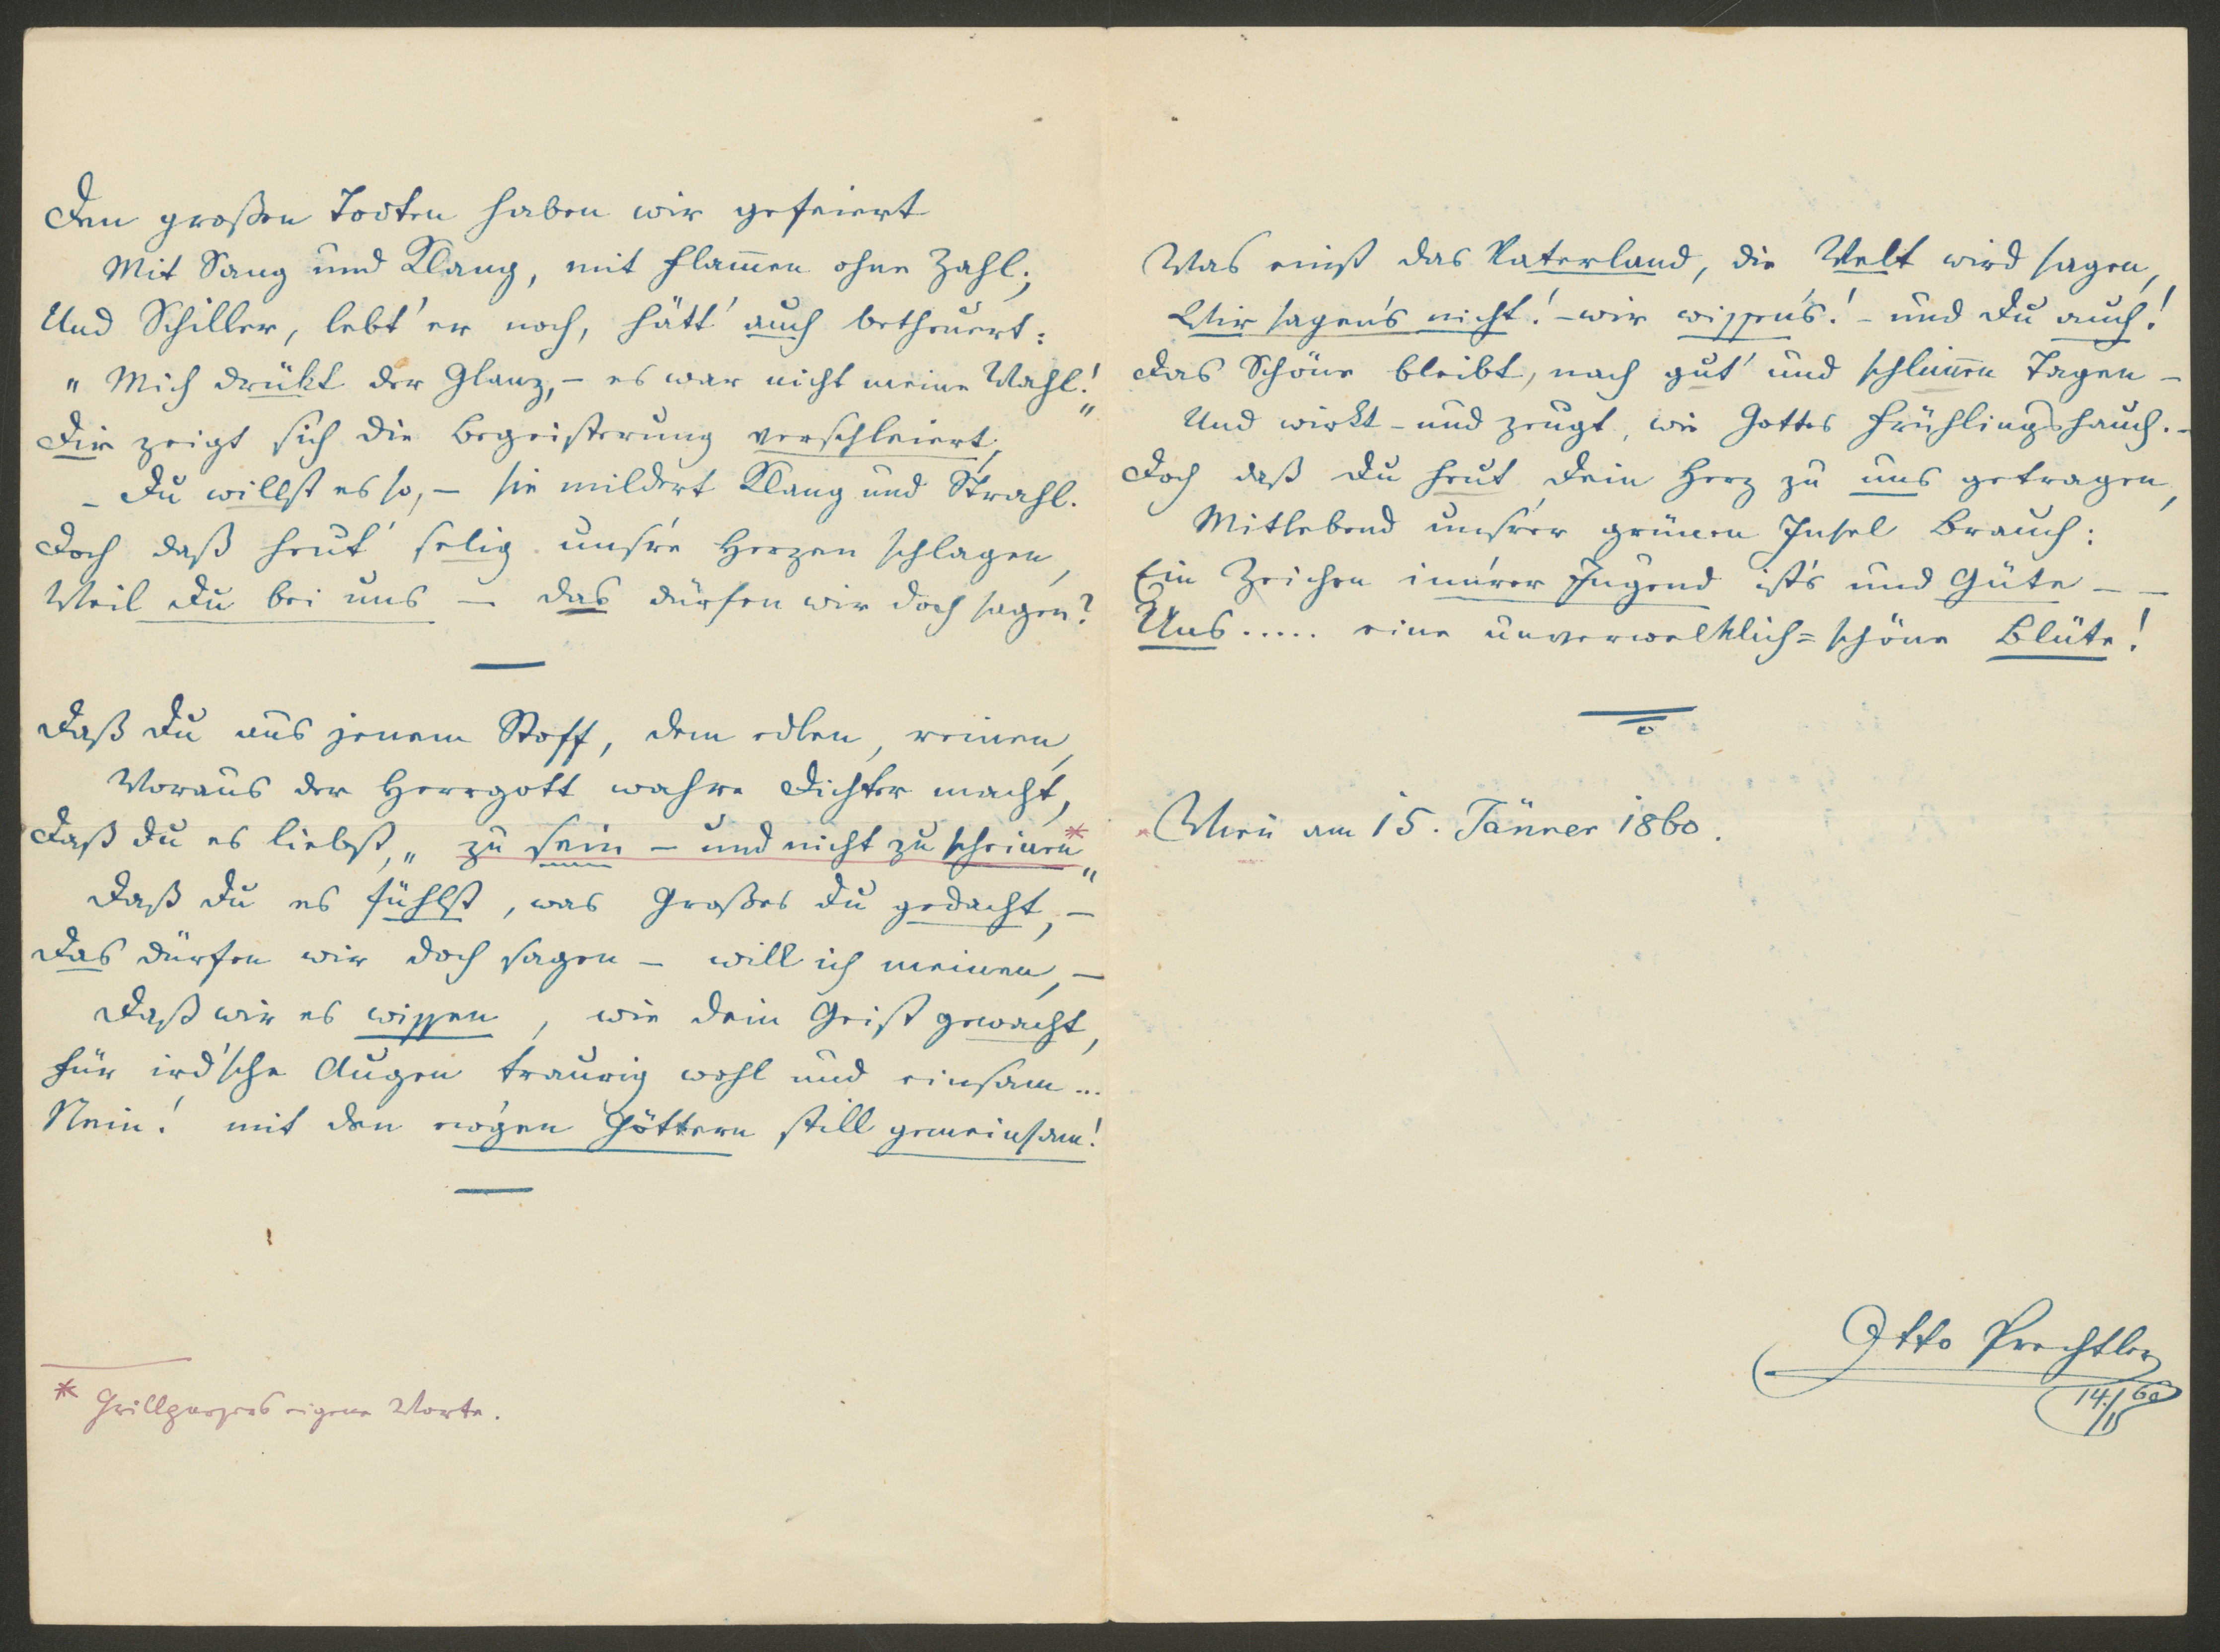 Den großen Todten haben wir gefeiert
Mit Sang und Klang, mit Flam̅en ohne Zahl;
Und Schiller, lebt' er noch, hätt' auch betheuert:
„Mich drükt der Glanz, – es war nicht meine Wahl!„
Dir zeigt sich die Begeisterung verschleiert,
– Du willst es so, – sie mildert Klang und Strahl.
Doch daß heut' selig uns're Herzen schlagen,
Weil Du bei uns – das dürfen wir doch sagen?
Daß Du aus jenem Stoff, dem edlen, reinen,
Woraus der Herrgott wahre Dichter macht,
Daß Du es liebst, „zu sein – und nicht zu scheinen„ *
Daß Du es fühlst, was Großes Du gedacht, –
Das dürfen wir doch sagen – will ich meinen, –
Daß wir es wissen, wie Dein Geist gewacht,
Für ird'sche Augen traurig wohl und einsam...
Nein! mit den ew'gen Göttern still gemeinsam!
* Grillparzers eigene Worte.
Was einst das Vaterland, die Welt wird sagen,
Wir sagen's nicht! – wir wissen's! – und Du auch!
Das Schöne bleibt, nach gut' und schlim̅en Tagen –
Und wirkt – und zeugt, wie Gottes Frühlingshauch. –
Doch daß Du heut Dein Herz zu uns getragen,
Mitlebend unsrer grünen Insel Brauch:
Ein Zeichen inn'rer Jugend ist's und Güte – –
Uns ..... eine unverwelklich=schöne Blüte!
Wien am 15. Jänner 1860.
Otto Prechtler
14./1 60